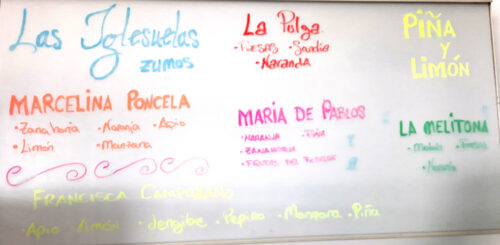 Las Iglesuelas
ZUMOS
La Pulga
• FRESAS • Sandía
• Naranja
PIÑA
y
LIMÓN
MARCELINA PONCELA
• Zanahoria • Naranja • Apio
• Limón • Manzana
MARÍA DE PABLOS
• NARANJA • PIÑA
• ZANAHORIA
• FRUTOS DEL BOSQUE
LA MELITONA
• Melón • Fresas
• Naranja
FRANCISCA
• Apio • Limón • Jengibre • Pepino • Manzana • Piña